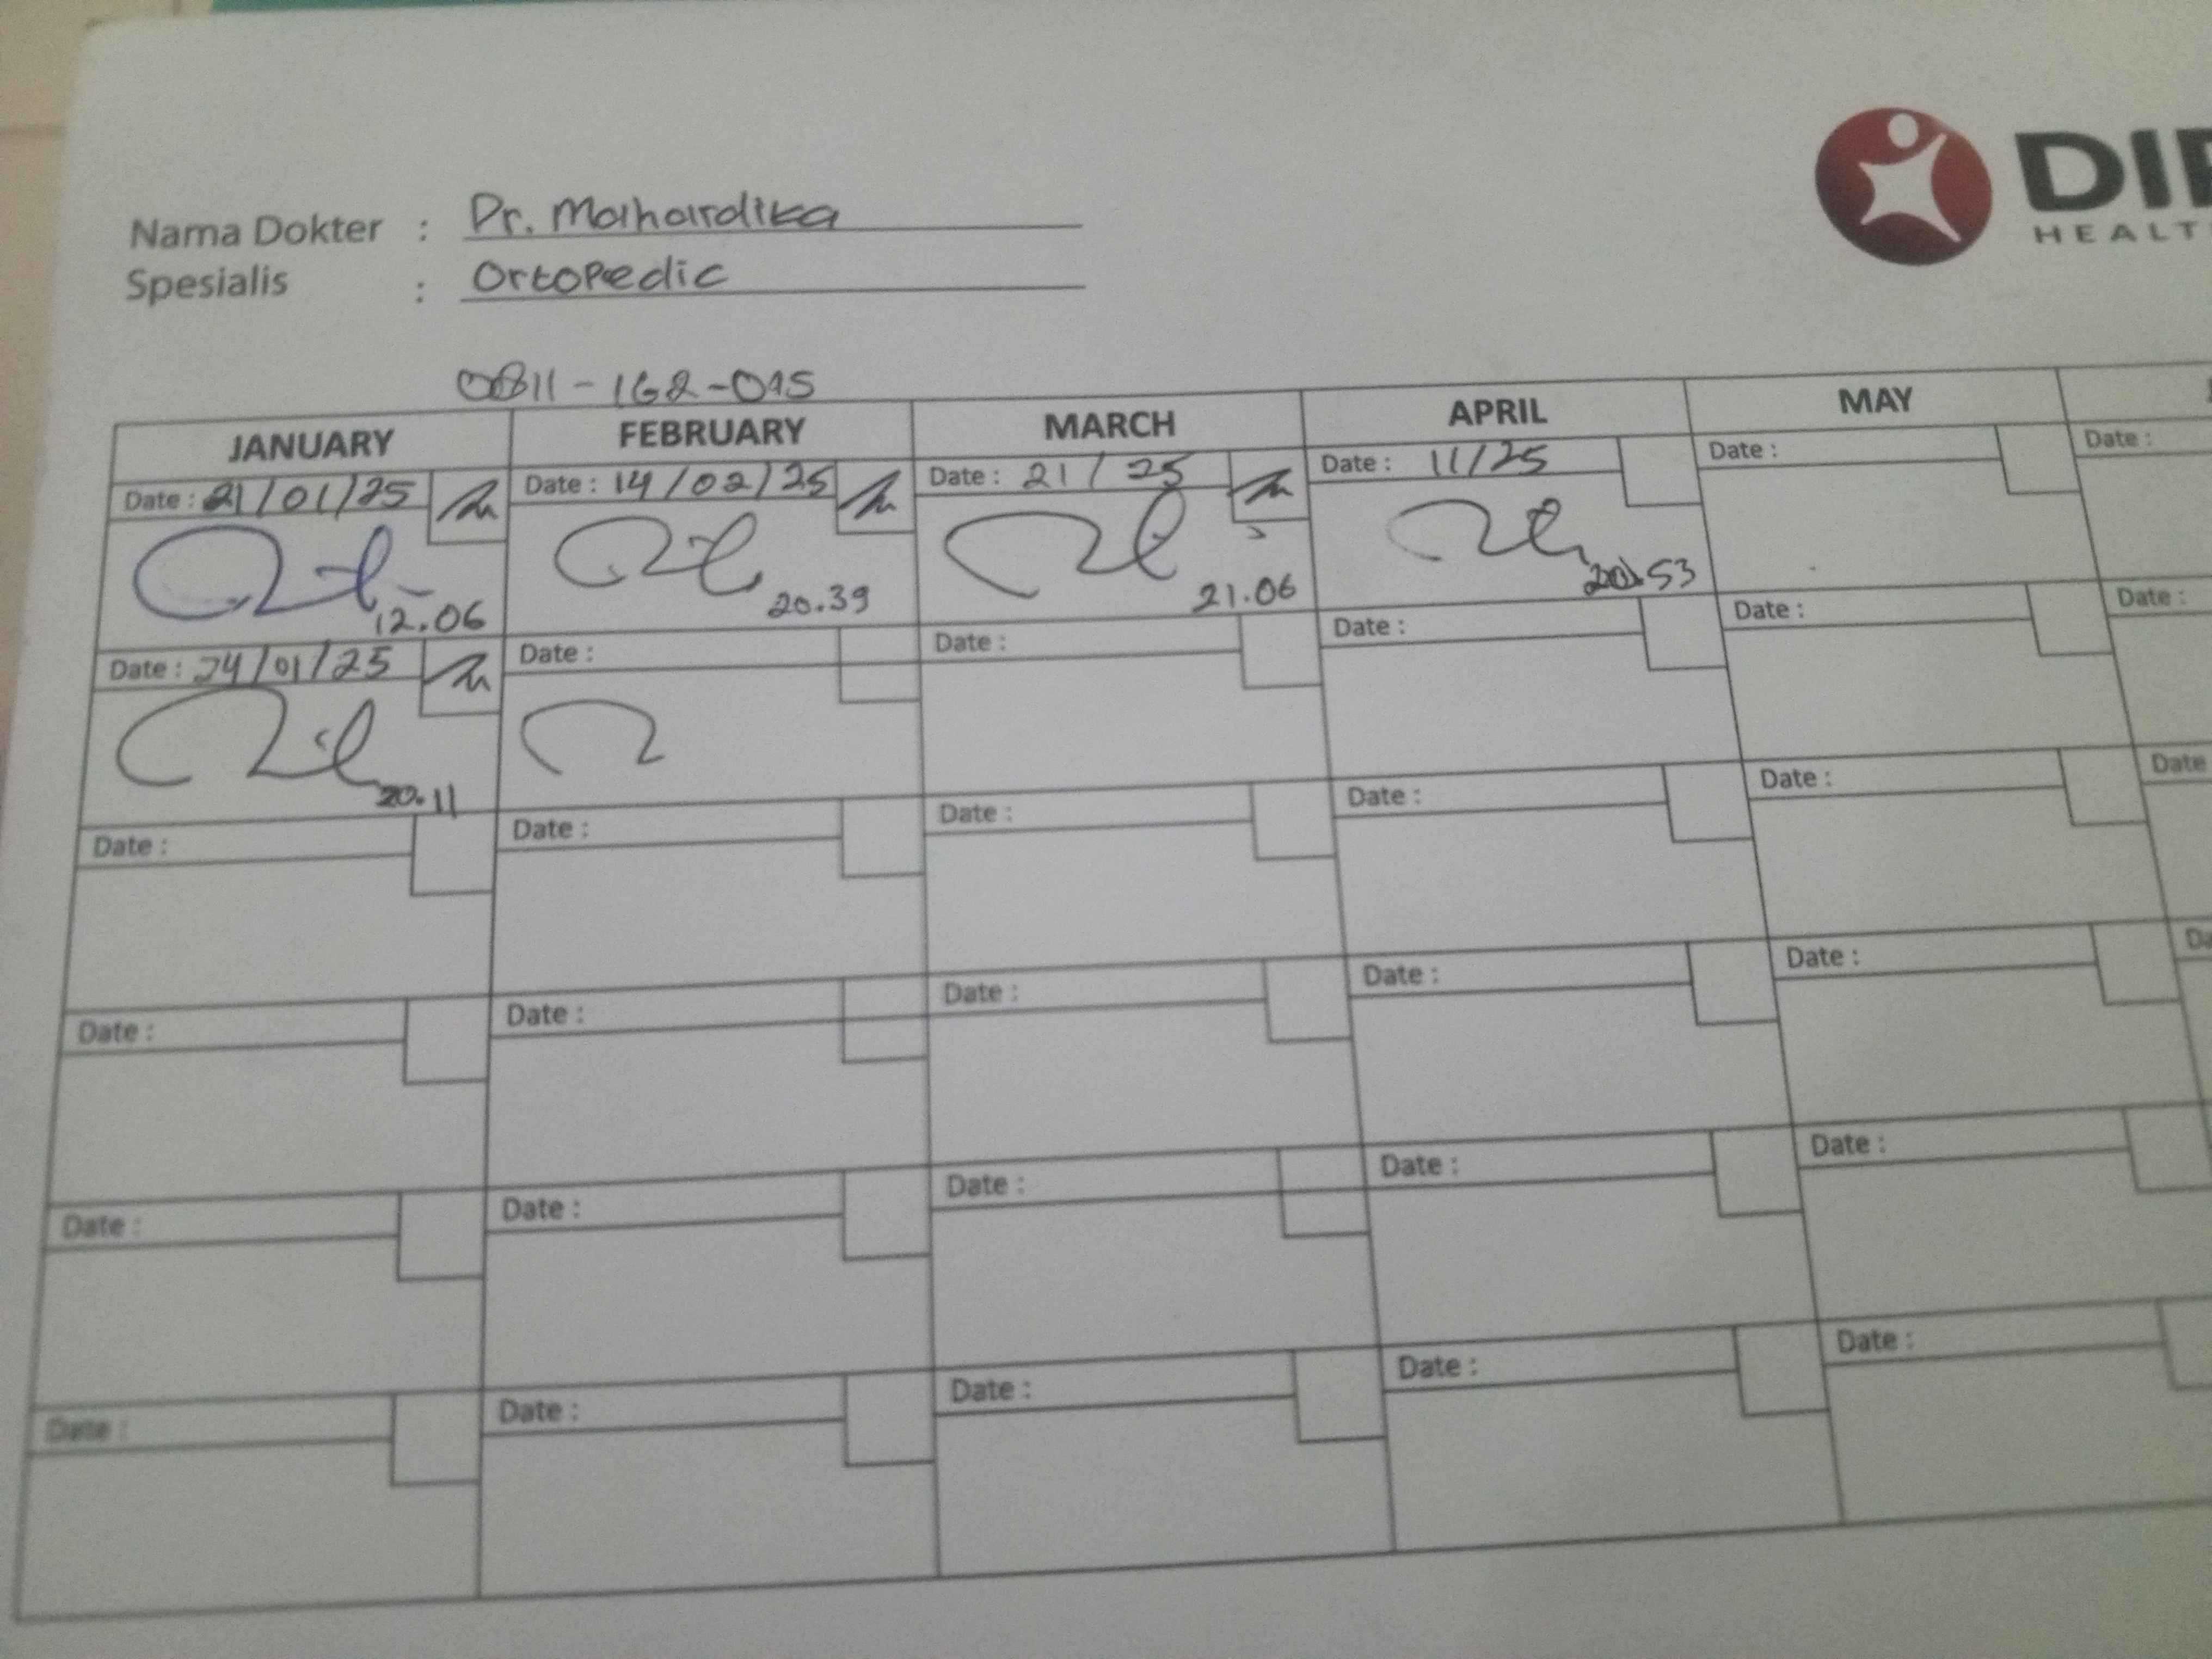 Nama Dokter : Dr. Mahardika
Spesialis : Ortopedic
DIP
HEALT
0811-162-015
JANUARY FEBRUARY MARCH APRIL MAY
Date : 21/01/25 Date : 14/02/25 Date : 21/ 25 Date : 11/25 Date : Date :
12.06 20.39 21.06 20.53
Date : 24/01/25 Date : Date : Date : Date : Date :
20.11
Date : Date : Date : Date : Date : Date
Date : Date : Date : Date : Date : Da
Date : Date : Date : Date : Date :
Date : Date : Date : Date : Date :